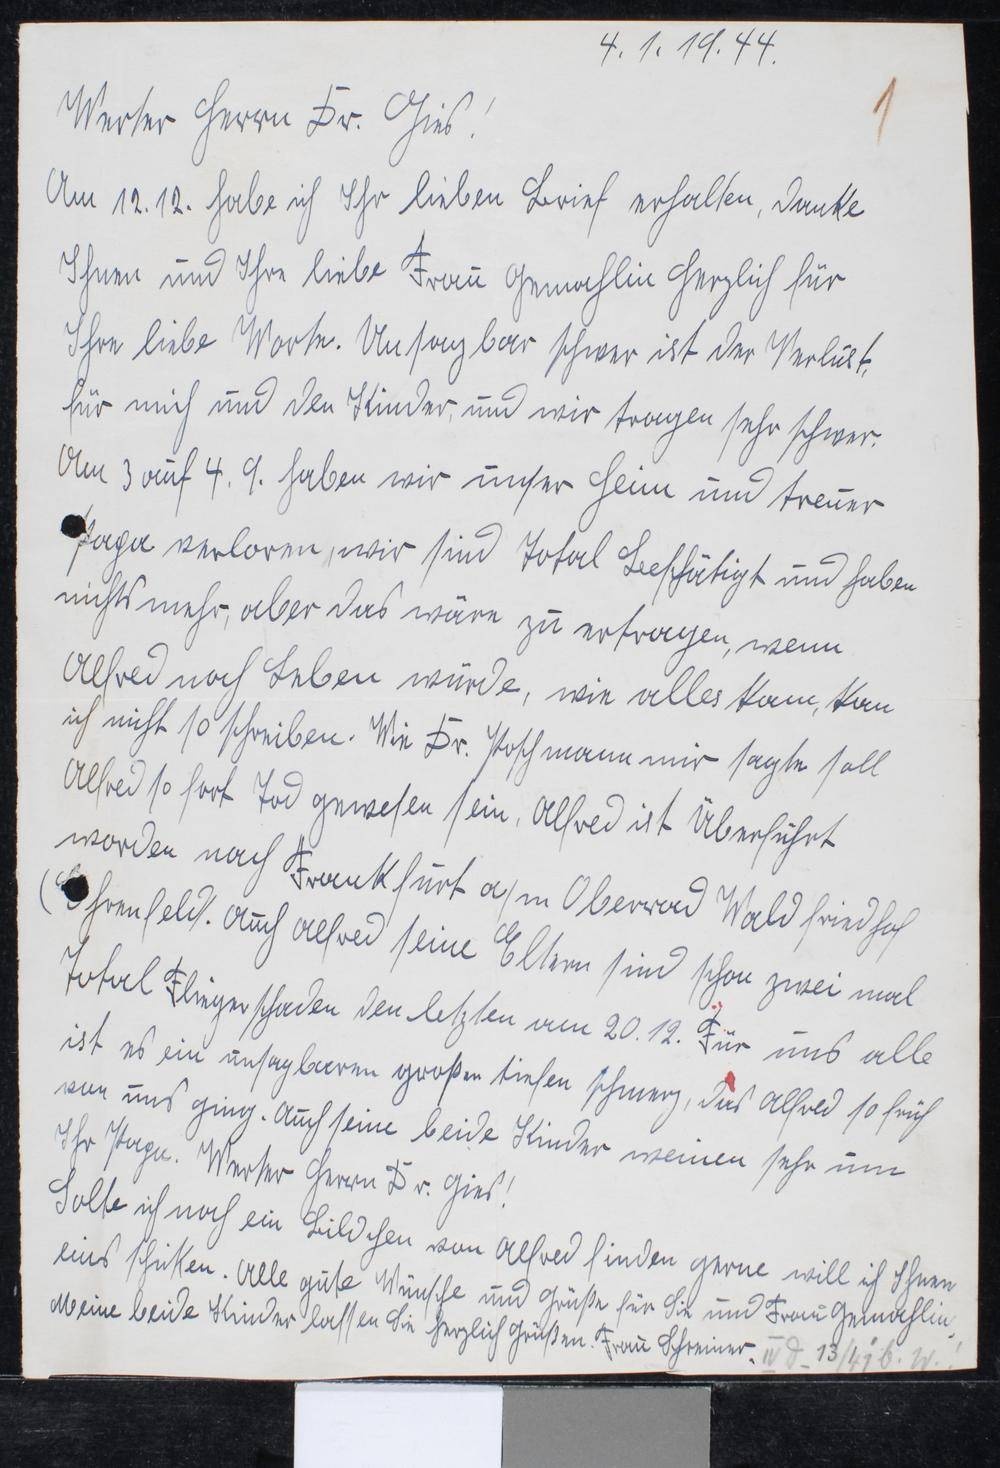 4. 1. 19.44.
1
Werter Herrn Dr. Gies!
Am 12.12. habe ich Ihr lieben Brief erhalten, danke
Ihnen und Ihre liebe Frau Gemahlin herzlich für
Ihre liebe Worte. Unsagbar schwer ist der Verlust,
für mich und den Kinder, und wir tragen sehr schwer.
Am 3 auf 4. 9. haben wir unser Heim und treuer
Papa verloren, wir sind Total Beschätigt und haben
nichts mehr, aber das wäre zu ertragen, wenn
Alfred noch Leben würde, wie alles kam, kan
ich nicht so schreiben. Wie Dr. Poschmann mir sagte soll
Alfred so fort Tod gewesen sein, Alfred ist Überführt
worden nach Frankfurt a/m Oberrad Wald friedhof
(Ehrenfeld). Auch Alfred seine Eltern sind schon zwei mal
Total Fliegerschaden den letzten am 20.12. Für uns alle
ist es ein unsagbaren großen tiefen schmerz, das Alfred so früh
von uns ging. Auch seine beide Kinder weinen sehr um
Ihr Papa. Werter Herrn Dr. Gies!
Solte ich noch ein Bildchen von Alfred finden gerne will ich Ihnen
eins schiken. Alle gute Wünsche und Grüße für Sie und Frau Gemahlin,
Meine beide Kinder lassen Sie herzlich Grüßen. Frau Schreiner.